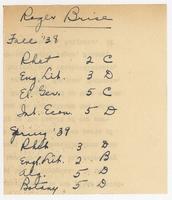 Roger Brise
Fall '38
Rhet 2 C
Eng. Lit. 3 D
El. Gov. 5 C
Int. Econ. 5 D
Spring '39
Rhet 3 D
Engl. Lit. 2 B
Alg. 5 D
Botany 5 D